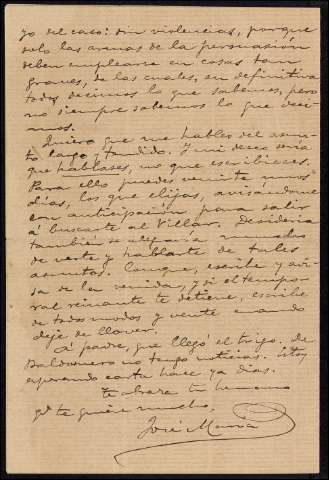 yo del caso: sin violencias, porque
solo las armas de la persuasión
deben emplearse en cosas tan
graves, de las cuales, en definitiva
todos decimos lo que sabemos, pero
no siempre sabemos lo que deci-
mos.
Quiero que me hables del asun-
to largo y tendido. Y mi deseo sería
que hablases, no que escribieses.
Para ello puedes venirte unos
días, los que elijas, avisándome
con anticipación para salir
á buscarte al Villar. Desideria
también se alegraría mucho
de verte y hablarte de tales
asuntos. Conque, escribe y aví-
sa de la venida, y si el tempo-
ral reinante te detiene, escribe
de todos modos y vente cuando
deje de llover.
Á padre, que llegó el trigo. De
Baldomero no tengo noticias. Estoy
esperando carta hace ya días.
Te abraza tu hermano
qe te quiere mucho,
José María